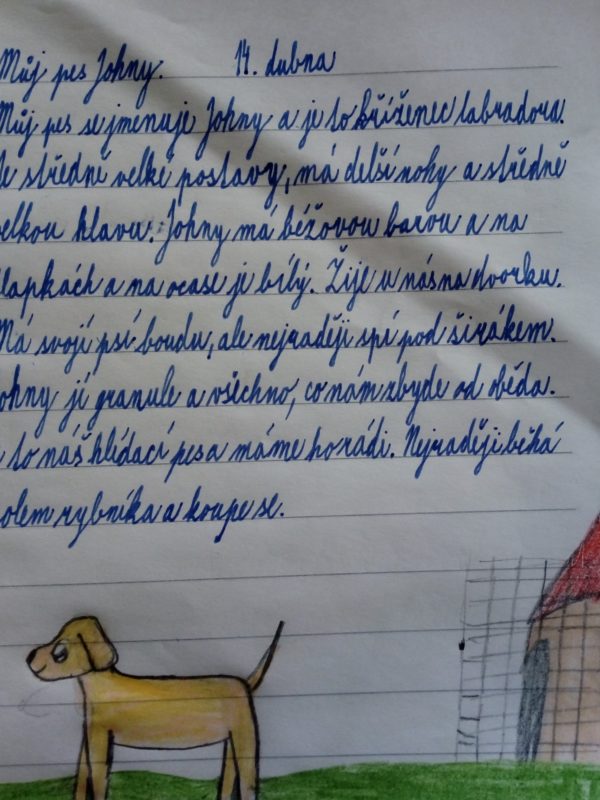 Můj pes Johny. 14. dubna
Můj pes se jmenuje Johny a je to kříženec labradora.
Je středně velké postavy, má delší nohy a středně
velkou hlavu. Johny má béžovou barvu a na
tlapkách a na ocase je bílý. Žije u nás na dvorku.
Má svojí psí boudu, ale nejraději spí pod širákem.
Johny jí granule a všechno, co nám zbyde od oběda.
to náš hlídací pes a máme ho rádi. Nejraději běhá
kolem rybníka a koupe se.